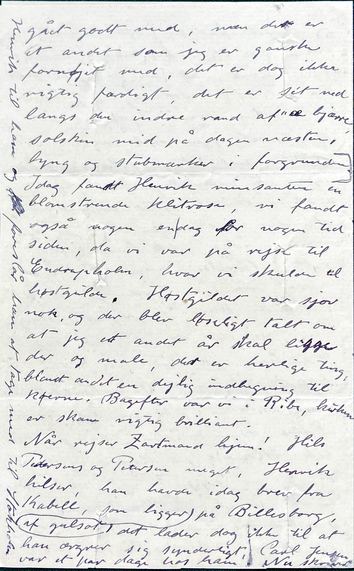 gået godt med, men det er
et andet som jeg er ganske
fornøjet med, det er dog ikke
rigtig færdigt, det er set ned
langs den indre rand af
solskin mid på dagen næsten,
lyng og stubmarker i forgrunden
Idag fandt Henrik minsanten en
blomstrende klitrose, vi fandt
også nogen endag for nogen tid
siden, da vi var på rejse til
hvor vi skulde til
høstgilde. Høstgildet var sjov
nok, og der blev løseligt talt om
at jeg et andet år skal ligge
der og male, det er herlige ting,
blandt andet en dejlig indbygning til
køerne. Bagefter var vi i Ribe, kirken
er skam rigtig brilliant.
Når rejser Zartmand hjem! Hils
Petersens og Petersen meget, Henrik
hilser, han havde idag brev fra
Kabell, som ligger på Billesborg,
(af gulsot) det lader dog ikke til at
han ærgrer sig synderligt, Carl Jensen
var et par dage hos ham Nu skriver
Henrik til ham og foreslår ham at tage med til